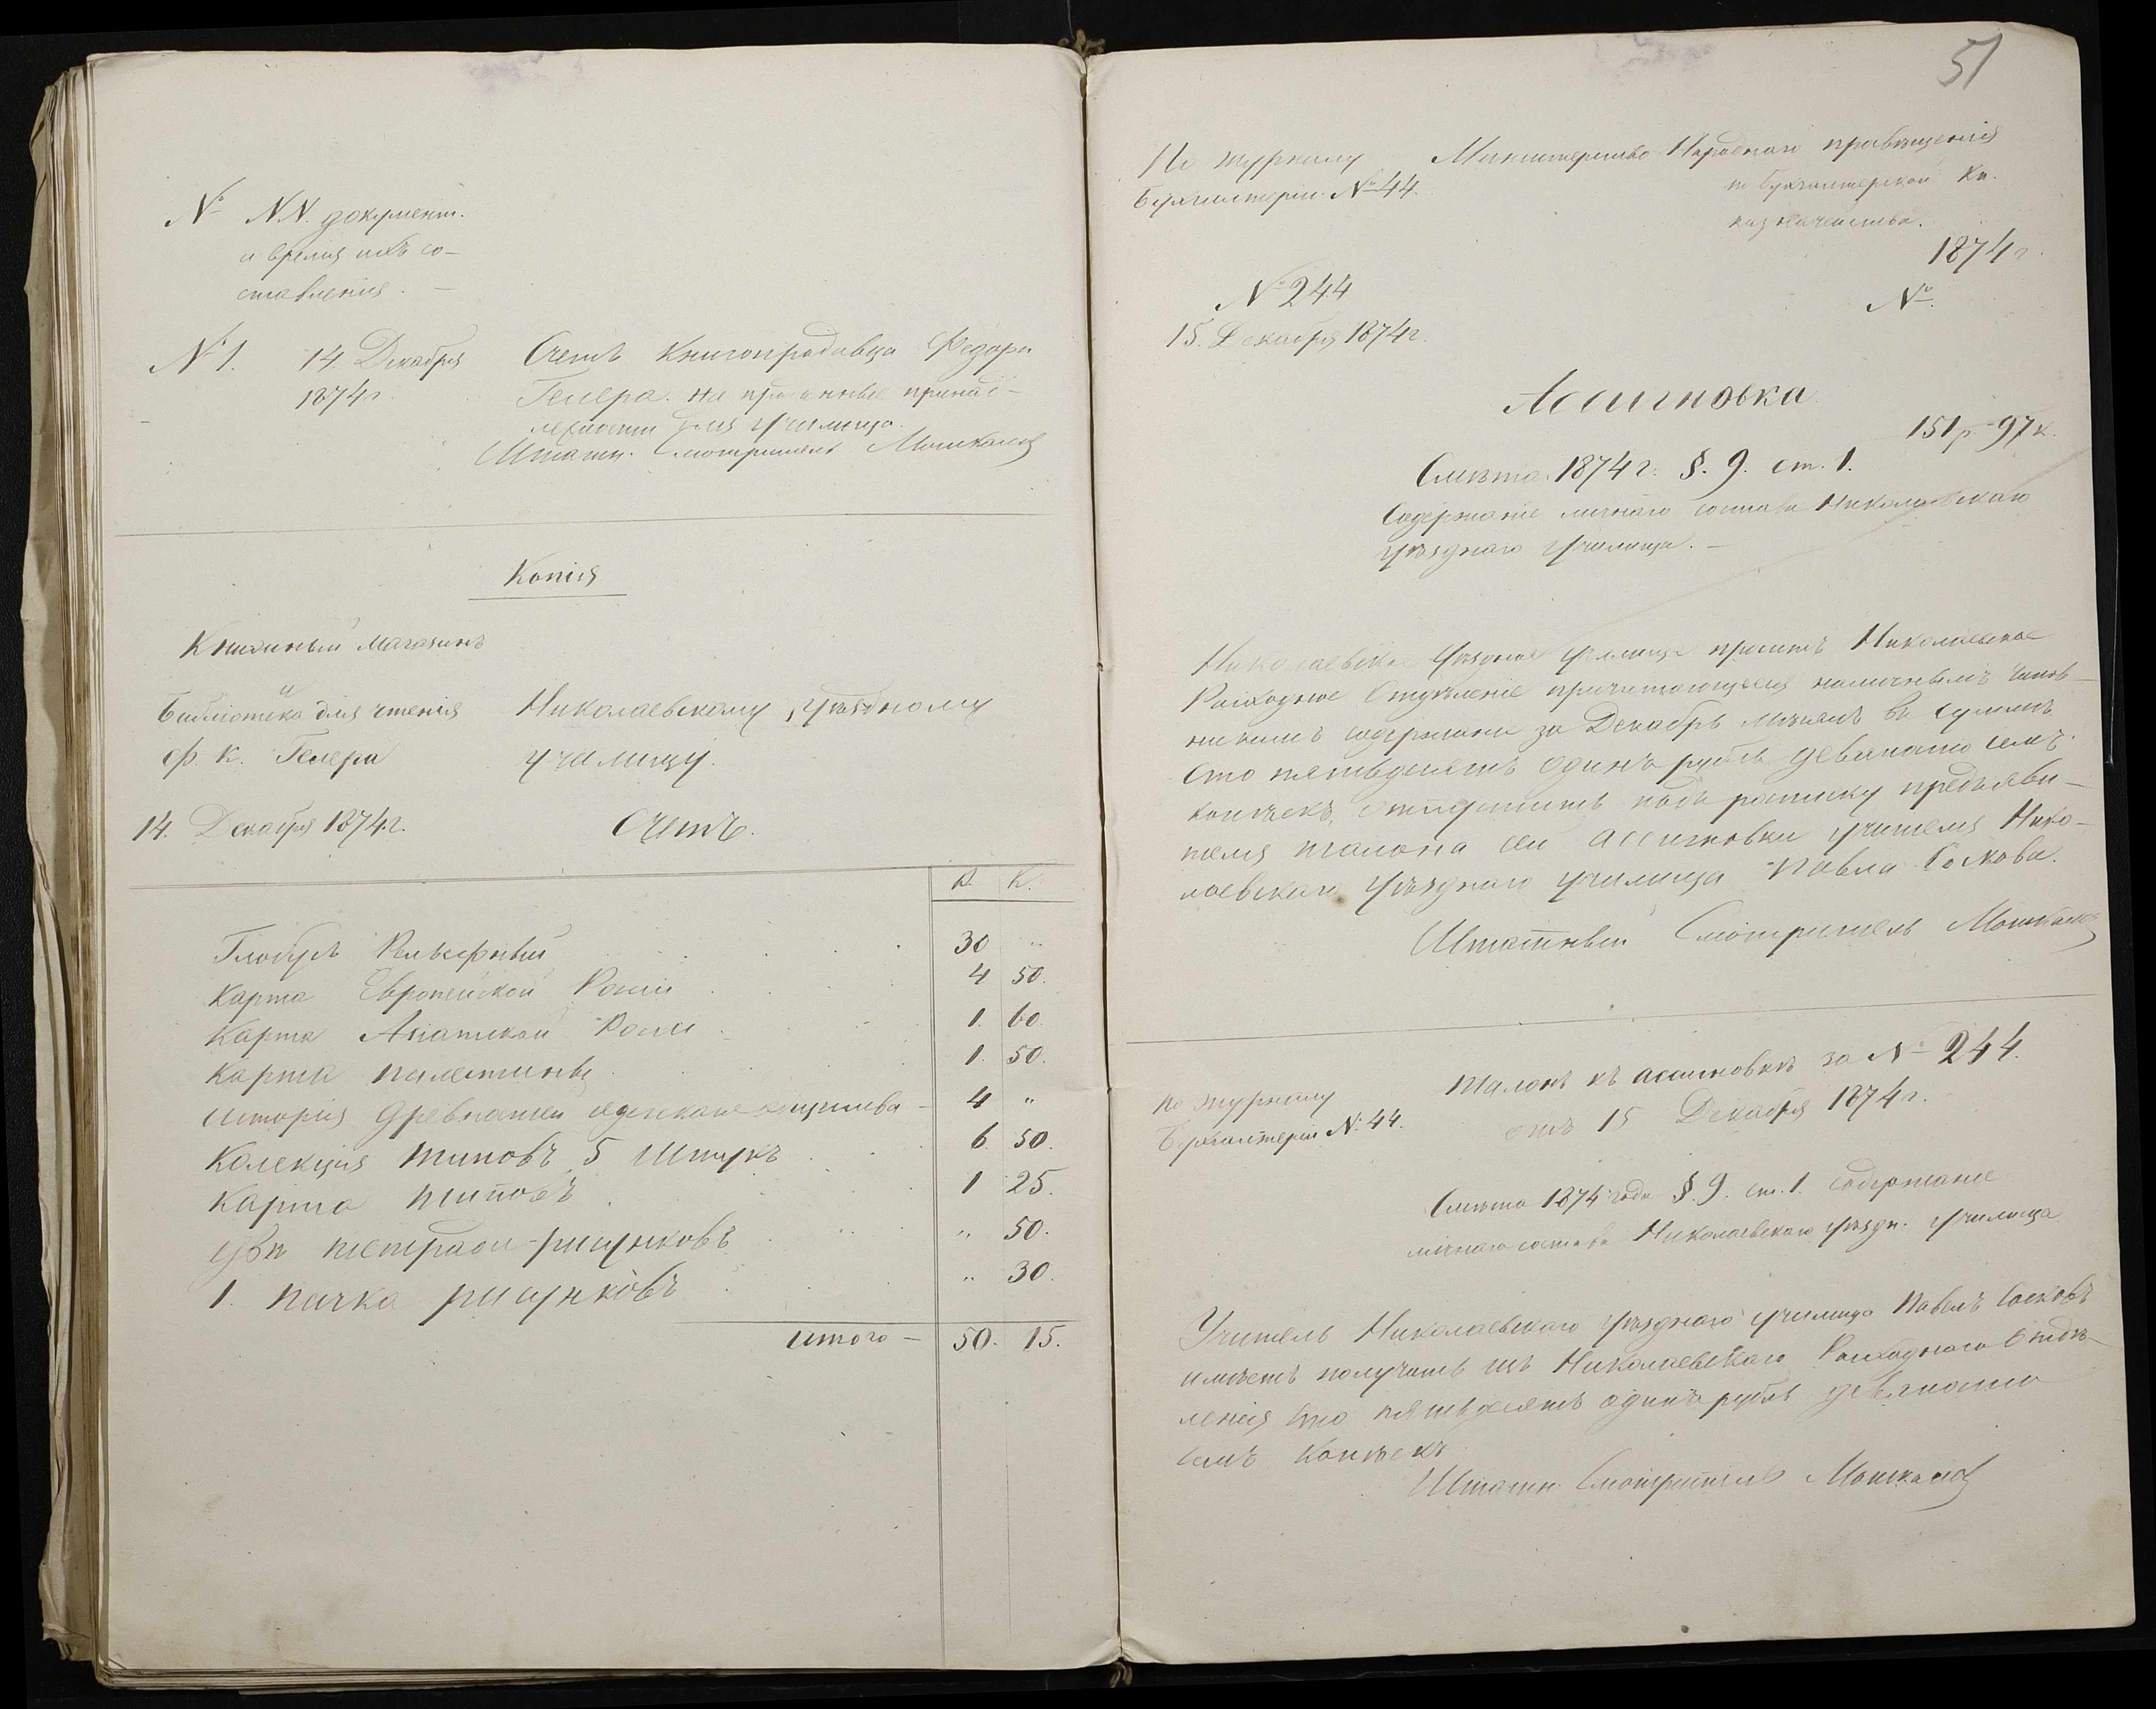 № NN. документ.
и время ихъ со-
ставленія. —
№ 1. 14. Декабря 1874 г.
Счетъ Книгопродавца Федора
Гелера. на проданные принад-
лежности для училища.
Штатн. Смотритель Мошкалов
Копія
Книжный Магазинъ
и
Библіотека для чтенія
Ф. К. Гелера
14. Декабря 1874 г.
Николаевскому уѣздному
училищу.
Счетъ.
Р. К.
Глобусъ Рельефный 30 "
Карта Европейской Россіи 4 50.
Карта Азіатской Россіи 1. 60.
Карта палестины 1. 50.
Исторія древнѣйшей – 4 "
Колекція типовъ 5 Штукъ 6 50.
Карта типовъ 1 25.
Двѣ тетради рисунковъ " 50.
1. пачка рисунковъ " 30.
итого – 50. 15.
51
По журналу
Бухгалтеріи № 44.
Министерство Народнаго просвѣщенія
Бухгалтерской Кн.
казначейства.
1874 г.
№
№ 244
15. Декабря 1874 г.
Ассигновка
151 р. 97 к.
Смѣта. 1874 г. §. 9. ст. 1.
Содержаніе личнаго состава Николаевскаго
уѣзднаго училища. —
Николаевское уѣздное училище проситъ Николаевское
Расходное Отдѣленіе причитающееся наличнымъ чинов-
никамъ содержаніе за Декабрь мѣсяцъ въ суммѣ
сто пятьдесятъ одинъ рубль девяносто семь
копѣекъ, отпустить подъ росписку предъяви-
теля талона сей ассигновки учителя Нико-
лаевскаго уѣзднаго училища Павла Соскова.
Штатный Смотритель Мошкалов
по журналу
Бухгалтеріи № 44.
Талонъ къ ассигновкѣ за № 244.
отъ 15 Декабря 1874 г.
Смѣта 1874 года §. 9. ст. 1. Содержаніе
личнаго состава Николаевскаго уѣздн. училища
Учитель Николаевскаго уѣзднаго училища Павелъ Сосковъ
имѣетъ получить изъ Николаевскаго Расходнаго Отдѣ-
ленія сто пятьдесятъ одинъ рубль девяносто
семь копѣекъ
Штатн. Смотритель Мошкалов